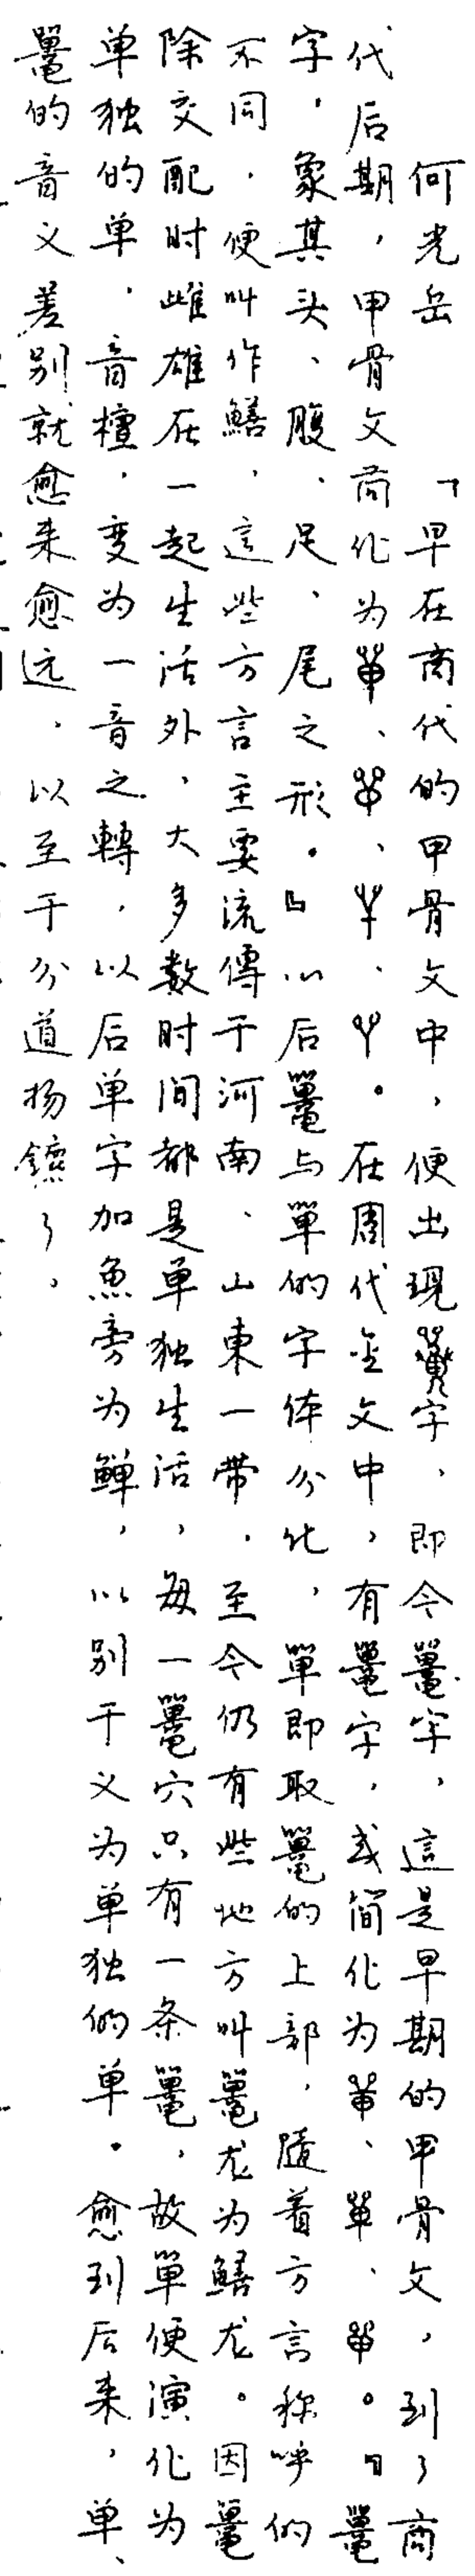 何光岳 「早在商代的甲骨文中，便出現字，即今鼍字，這是早期的甲骨文，到了商
代后期，甲骨文简化为、、、。在周代金文中，有鼍字，或简化为、單、。日鼍
字，象其头、腹、足、尾之形。』以后鼍与單的字体分化，單即取鼍的上部，随着方言称呼的
不同，便叫作鱔，這些方言主要流傳于河南、山東一带，至今仍有些地方叫鼍龙为鱔龙。因鼍
除交配时雌雄在一起生活外，大多数时间都是单独生活，每一鼍穴只有一条鼍，故單便演化为
单独的单，音檀，变为一音之轉，以后单字加魚旁为鱓，以别于义为单独的单。愈到后来，单、
鼍的音义差别就愈来愈远，以至于分道扬鑣了，